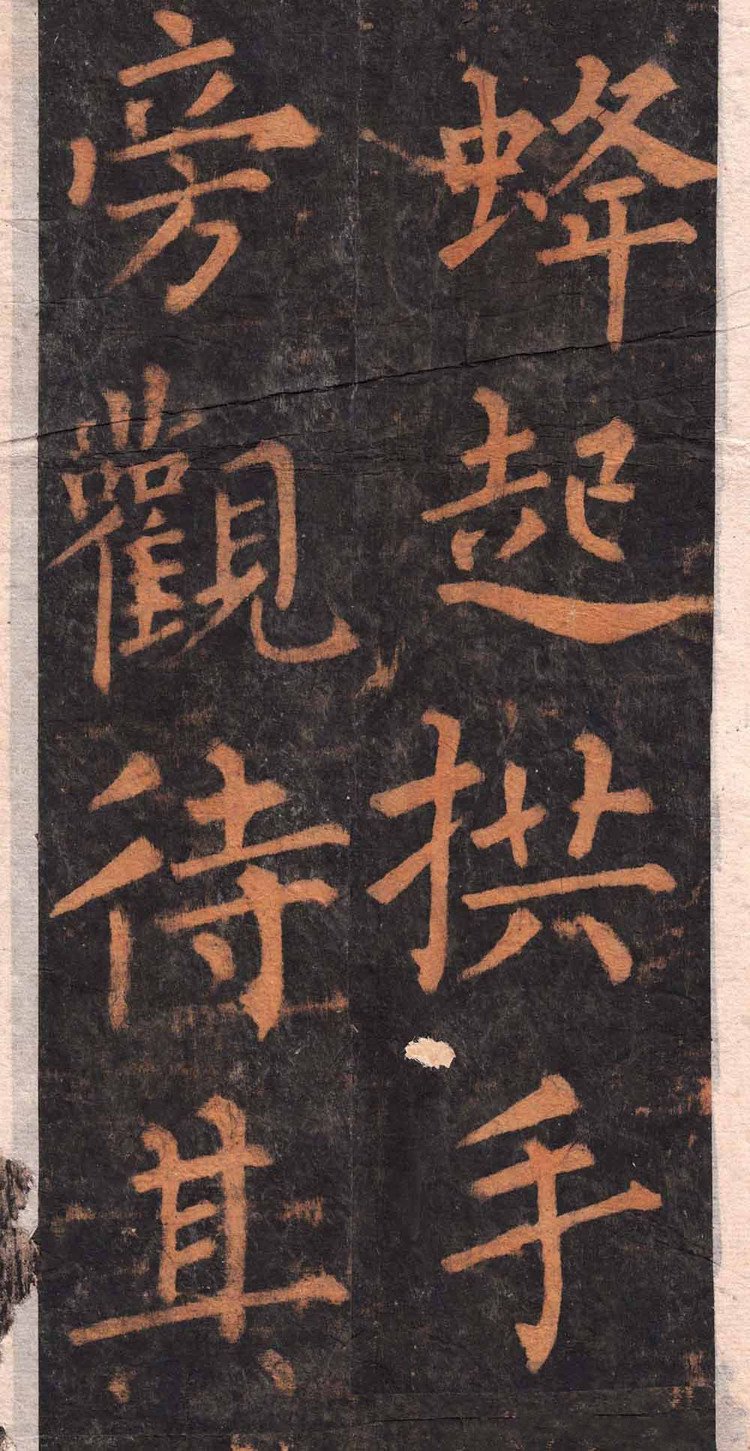 蜂起拱手
旁觀待其